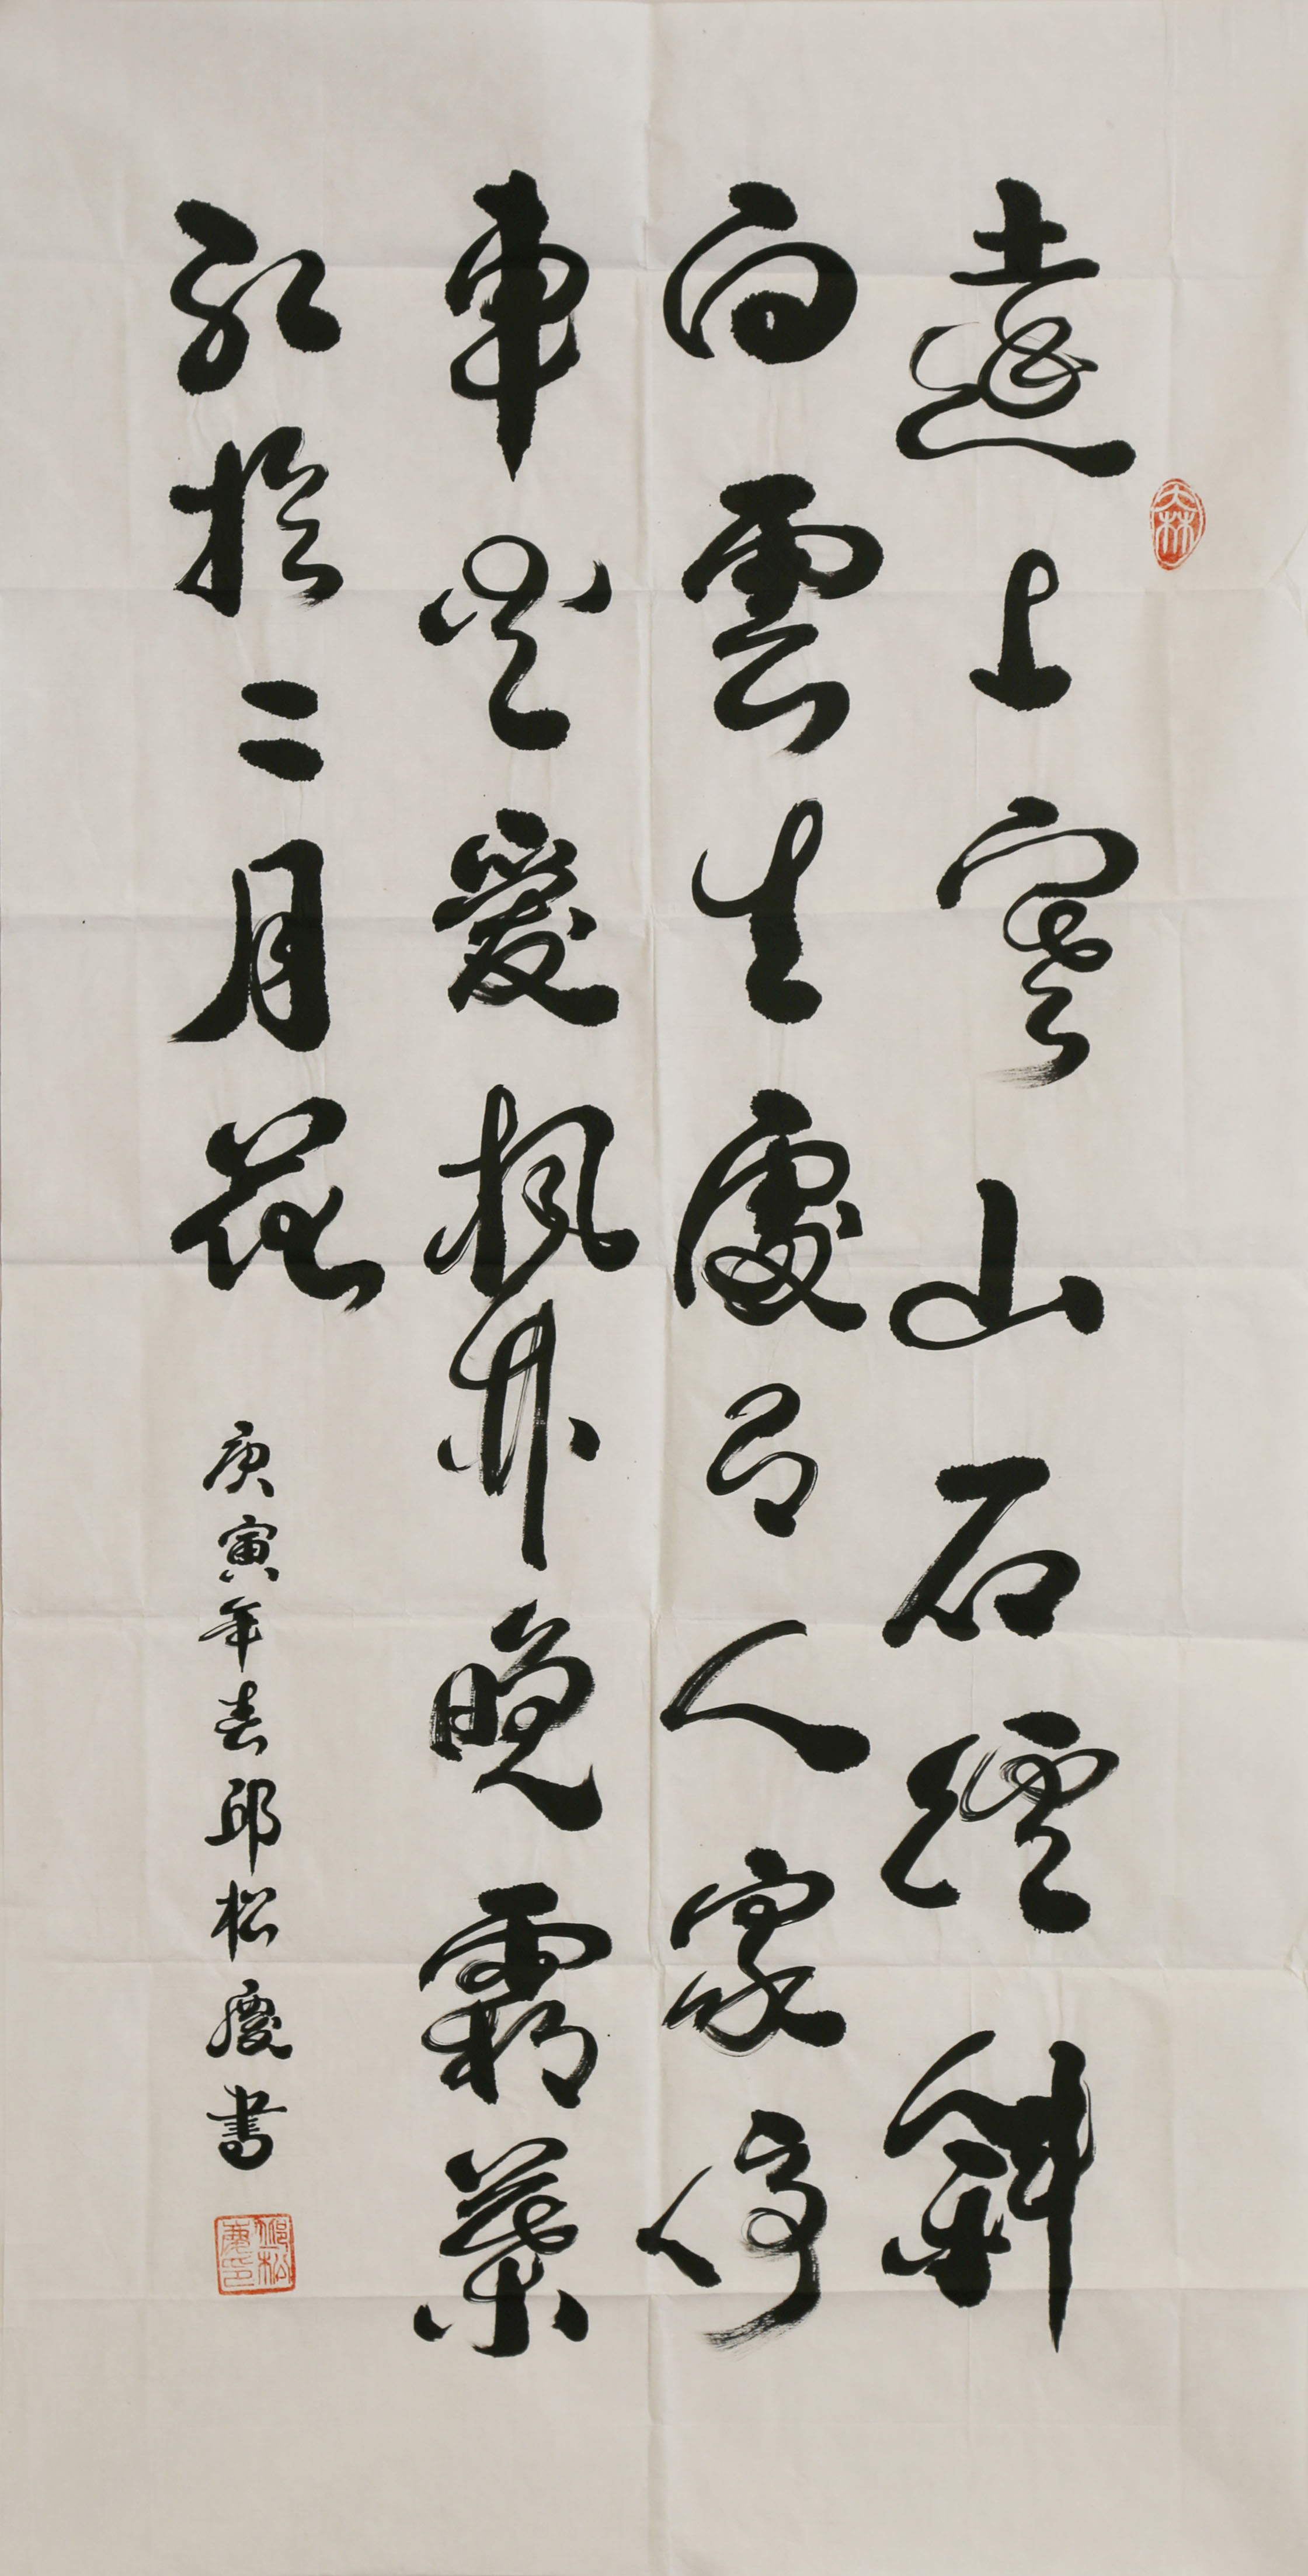 遠上寒山石徑斜
白雲生處有人家停
車坐愛楓林晚霜葉
紅於二月花
庚寅年春邱松慶書
邱松慶印